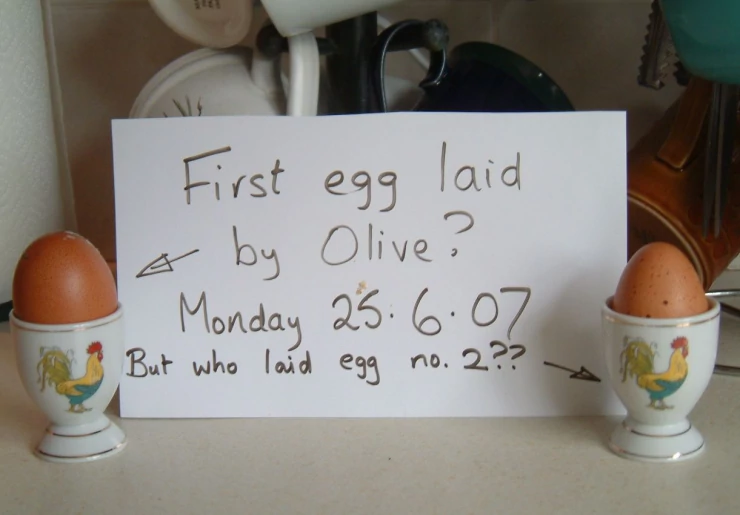 First egg laid
by Olive?
Monday 25.6.07
But who laid egg no. 2??